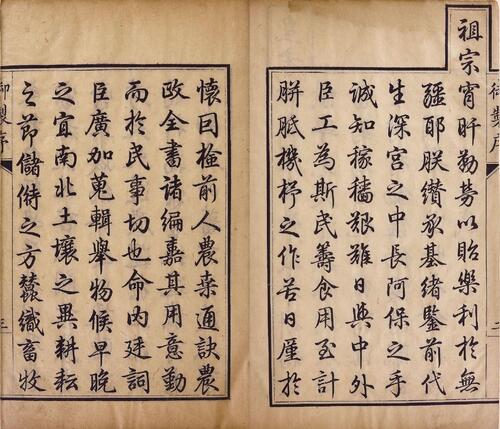 祖宗宵旰勤勞以貽樂利於無
疆耶朕纘承基緒鑒前代
生深宮之中長阿保之手
誠知稼穡艱難日與中外
臣工為斯民籌食用至計
胼胝機杼之作苦日廑於
懷因檢前人農桑通訣農
政全書諸編嘉其用意勤
而於民事切也命內廷詞
臣廣加蒐輯舉物候早晚
之宜南北土壤之異耕耘
之節儲偫之方蠶織畜牧
御製序
三